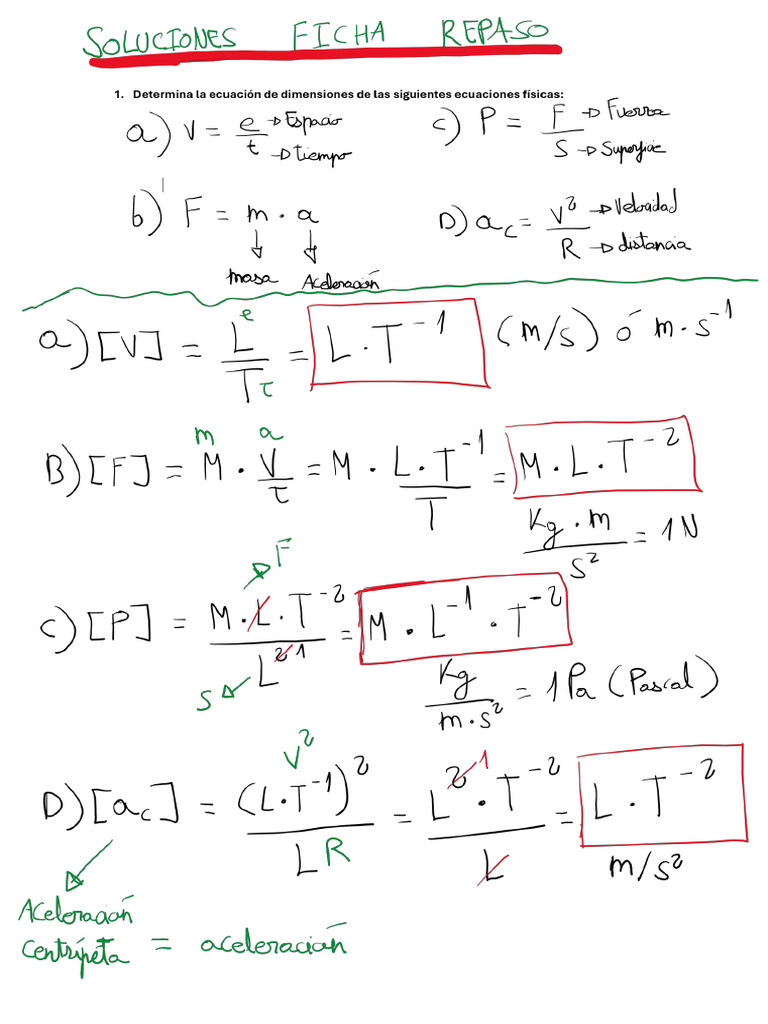 SOLUCIONES FICHA REPASO
1. Determina la ecuación de dimensiones de las siguientes ecuaciones físicas:
a) V = e/t → Espacio → tiempo
c) P = F/S → Fuerza → Superficie
b) F = m · a
masa Aceleración
D) a_c = V²/R → Velocidad → distancia
a) [V] = L/T = L · T⁻¹ (m/s) ó m · s⁻¹
e
t
m a
B) [F] = M · V/t = M · L · T⁻¹/T = M · L · T⁻²
Kg · m/s² = 1N
F
C) [P] = M · L · T⁻²/L² 1 = M · L⁻¹ · T⁻²
S
Kg/m · s² = 1 Pa (Pascal)
V²
D) [a_c] = (L · T⁻¹)²/L R = L² 1 · T⁻²/L = L · T⁻²
m/s²
Aceleración
Centrípeta = aceleración